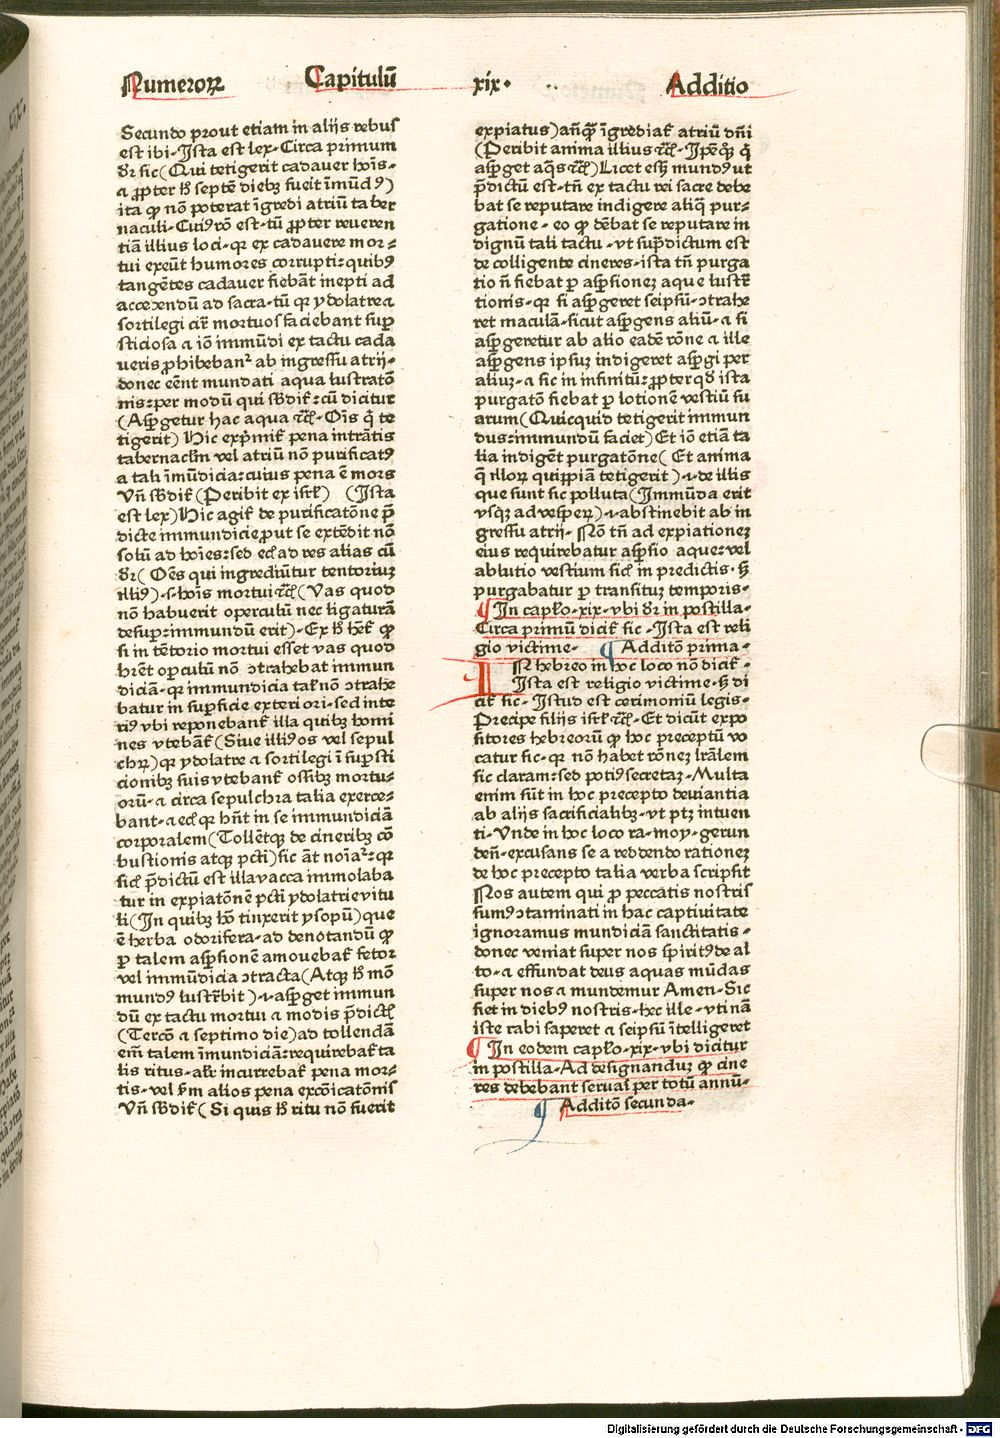 Numerorꝝ Capitulū xix. Additio
Secundo prout etiam in alijs rebus
est ibi. Ista est lex. Circa primum
dr̄ sic (Qui tetigerit cadauer hoīs.
a ꝓpter h̄ septē diebꝫ fuerit īmūdꝰ)
ita ꝙ nō poterat īgredi atriū taber
naculi. Cuiꝰ rō est. tū ꝓpter reueren
tiā illius loci. qꝛ ex cadauere mor⸗
tui exeūt humores corrupti: quibꝰ
tangētes cadauer fiebāt inepti ad
accedendū ad sacra. tū qꝛ ydolatre a
sortilegi cir̄ mortuos faciebant suꝑ
sticiosa a iō immūdi ex tactu cada
ueris ꝓhibebant᷑ ab ingressu atrij.
donec eēnt mundati aqua lustratō
nis: per modū qui sb̄dit᷑: cū dicitur
(Asꝑgetur hac aqua ⁊c̄. Oīs q̇ te
tigerit) Hic exp̄mit᷑ pena intrātis
tabernacl̄m vel atriū nō purificatꝰ
a tali īmūdicia: cuius pena ē mors
Vn̄ sb̄dit᷑ (Peribit ex isrl̄) (Ista
est lex) Hic agit᷑ de purificatōne p̄
dicte immundicie prout se extēdit nō
solū ad hoīes: sed eciā ad res alias cū
dr̄ (Oēs qui ingrediūtur tentoriuꝫ
illiꝰ). s. hoīs mortui ⁊c̄ (Vas quod
nō habuerit operculū nec ligaturā
desuꝑ: immundū erit). Ex h̄ het᷑ ꝙ
si in tētorio mortui esset vas quod
hr̄et oꝑculū nō ꝯtrahebat immun
diciā. qꝛ immundicia tal̄ nō ꝯtrahe
batur in suꝑficie exteriori. sed inte
riꝰ vbi reponebant᷑ illa quibꝫ homi
nes vtebāt᷑ (Siue illiꝰ os vel sepul
chrꝝ) qꝛ ydolatre a sortilegi ī suꝑsti
cionibꝫ suis vtebant᷑ ossibꝫ mortu⸗
orū. a circa sepulchra talia exerce⸗
bant. a eciā qꝛ hn̄t in se immundiciā
corporalem (Tollētqꝫ de cineribꝫ cō
bustionis atqꝫ pcti) sic āt noīat᷑: qꝛ
sic̄ p̄dictū est illa vacca immolaba
tur in expiatōnē pcti ydolatrie vitu
li (In quibꝫ hō tinxerit ysopū) que
ē herba odorifera. ad denotandū ꝙ
ꝑ talem asꝑsionē amouebat᷑ fetor
vel immūdicia ꝯtracta (Atqꝫ h̄ mō
mundꝰ lustrabit). i. asꝑget immun
dū ex tactu mortui a modis p̄dict̄
(Tercō a septimo die) ad tollendā
em̄ talem īmundiciā: requirebat᷑ ta
lis ritus. al̄r incurrebat᷑ pena mor⸗
tis. vel s̄m alios pena excōicatōnis
Vn̄ sb̄dit᷑ (Si quis h̄ ritu nō fuerit
expiatus) an̄qꝫ īgrediat᷑ atriū dn̄i
(Peribit anima illius ⁊c̄. Ipe qꝫ q̇
asꝑget aq̄s ⁊c̄) Licet esꝫ mundꝰ vt
p̄dictū est. tn̄ ex tactu rei sacre debe
bat se reputare indigere aliq̄ pur⸗
gatione. eo ꝙ dēbat se reputare in
dignū tali tactu. vt sup̄dictum est
de colligente cineres. ista tn̄ purga
tio n̄ fiebat ꝑ asꝑsionez aque lustra
tionis. qꝛ si asꝑgeret seipsū. ꝯtrahe
ret maculā. sicut asꝑgens aliū. a si
asꝑgeretur ab alio eadē rōne a ille
asꝑgens ipsuꝫ indigeret asꝑgi per
aliuꝫ. a sic in infinitū: ꝓpter qd̄ ista
purgatō fiebat ꝑ lotionē vestiū su
arum (Quicquid tetigerit immun
dus: immundū faciet) Et iō etiā ta
lia indigēt purgatōne (Et anima
q̄ illorꝝ quippiā tetigerit). i. de illis
que sunt sic polluta (Immūda erit
vsqꝫ ad vesꝑerꝝ). i. abstinebit ab in
gressu atrij. Nō tn̄ ad expiationez
eius requirebatur asꝑsio aque: vel
ablutio vestium sic̄ in predictis. sꝫ
purgabatur ꝑ transituꝫ temporis.
¶ In cap̄lo. xix. vbi dr̄ in postilla.
Circa primū dicit᷑ sic. Ista est reli
gio victime. ¶ Additō prima.
IN hebreo in hoc loco nō dicit᷑.
Ista est religio victime. sꝫ di
cit᷑ sic. Istud est cerimoniū legis.
Precipe filijs isrl̄ ⁊c̄. Et dicūt expo
sitores hebreorū ꝙ hoc preceptū vo
catur sic. qꝛ nō habet rōneꝫ lr̄alem
sic claram: sed potiꝰ secretaꝫ. Multa
enim sūt in hoc precepto deuiantia
ab alijs sacrificialibꝫ. vt ptꝫ intuen
ti. Vnde in hoc loco ra. moy. gerun
den̄. excusans se a reddendo rationeꝫ
de hoc precepto talia verba scripsit
Nos autem qui ꝓ peccatis nostris
sumꝰ ꝯtaminati in hac captiuitate
ignoramus mundiciā sanctitatis.
donec veniat super nos spiritꝰ de al
to. a effundat deus aquas mūdas
super nos a mundemur Amen. Sic
fiet in diebꝰ nostris. hec ille. vtinā
iste rabi saperet a seipsū ītelligeret
¶ In eodem cap̄lo. xix. vbi dicitur
in postilla. Ad designanduꝫ ꝙ cine
res debebant seruari per totū annū.
¶ Additō secunda.
Digitalisierung gefördert durch die Deutsche Forschungsgemeinschaft - DFG